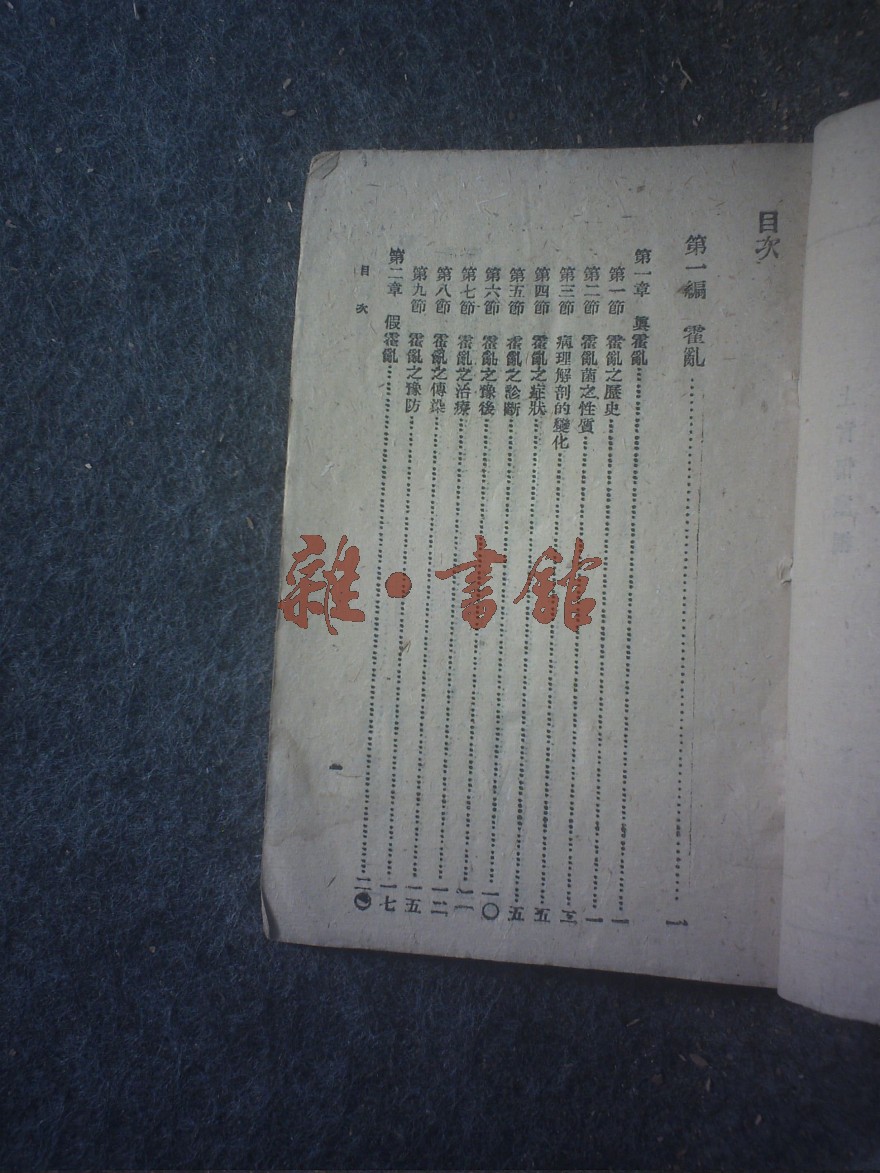 目次
第一編 霍亂……一
第一章 眞霍亂……一
第一節 霍亂之歷史……一
第二節 霍亂菌之性質……三
第三節 病理解剖的變化……五
第四節 霍亂之症狀……五
第五節 霍亂之診斷……一〇
第六節 霍亂之豫後……一一
第七節 霍亂之治療……一二
第八節 霍亂之傳染……一五
第九節 霍亂之豫防……一七
第二章 假霍亂……二〇
目次
一
雜·書館